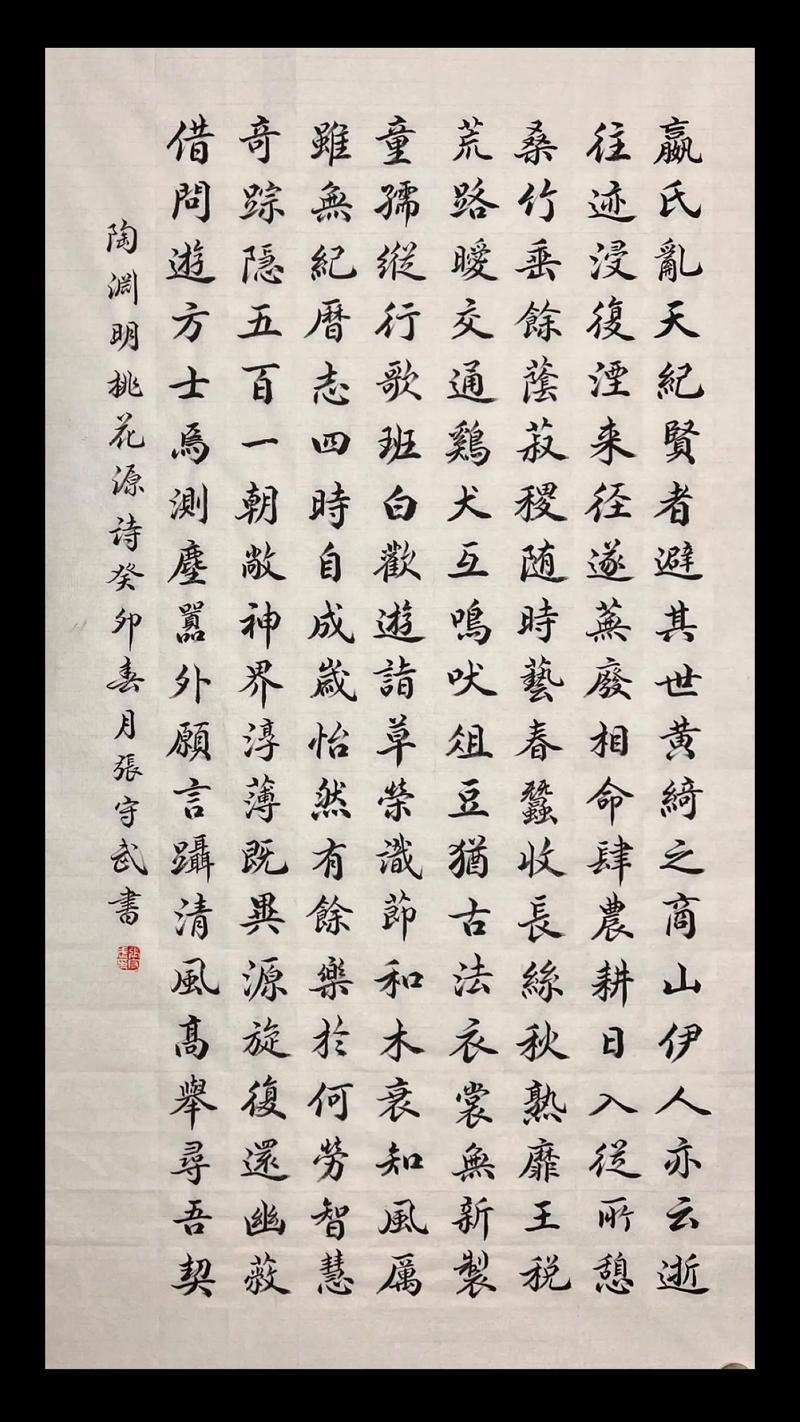 嬴氏亂天紀賢者避其世黄綺之商山伊人亦云逝
往迹浸復湮来径遂蕪廢相命肆農耕日入從所憩
桑竹垂餘蔭菽稷随時藝春蠶收長絲秋熟靡王税
荒路曖交通鷄犬互鳴吠俎豆猶古法衣裳無新製
童孺縱行歌班白歡遊詣草榮識節和木衰知風厲
雖無紀曆志四時自成歲怡然有餘樂於何勞智慧
奇踪隱五百一朝敞神界淳薄既異源旋復還幽蔽
借問遊方士焉測塵囂外願言躡清風高舉尋吾契
陶淵明桃花源詩癸卯春月張守武書